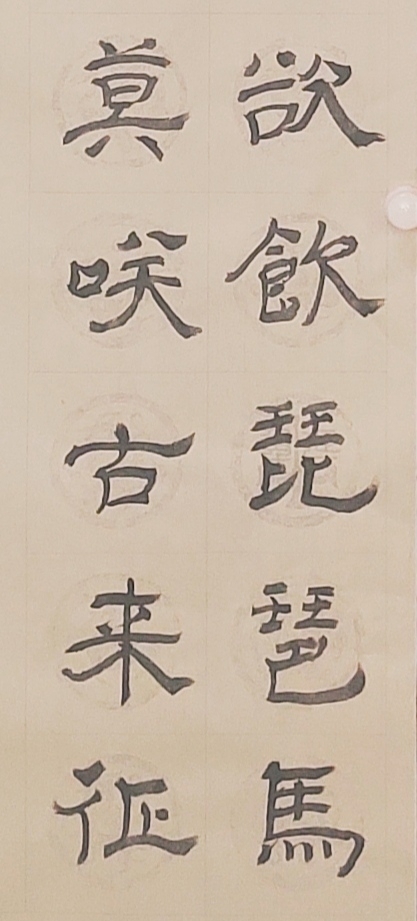 欲飲琵琶馬
莫咲古来征